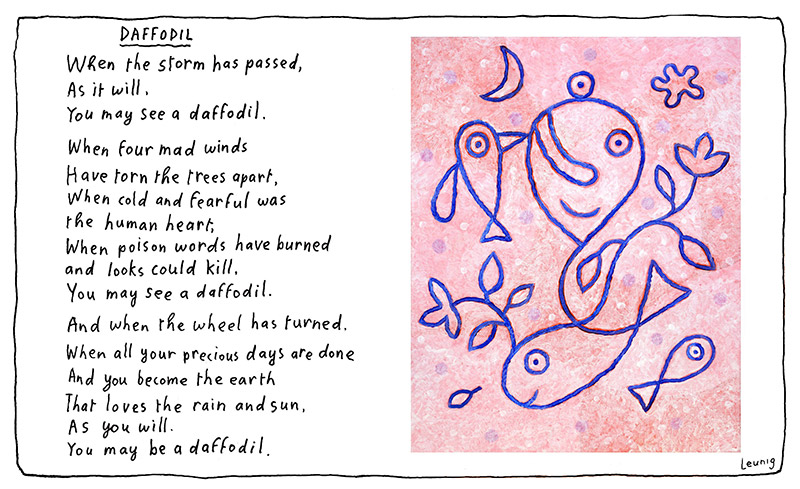 DAFFODIL
When the storm has passed,
As it will,
You may see a daffodil.
When four mad winds
Have torn the trees apart,
When cold and fearful was
the human heart,
When poison words have burned
and looks could kill,
You may see a daffodil.
And when the wheel has turned.
When all your precious days are done
And you become the earth
That loves the rain and sun,
As you will.
You may be a daffodil.
Leunig